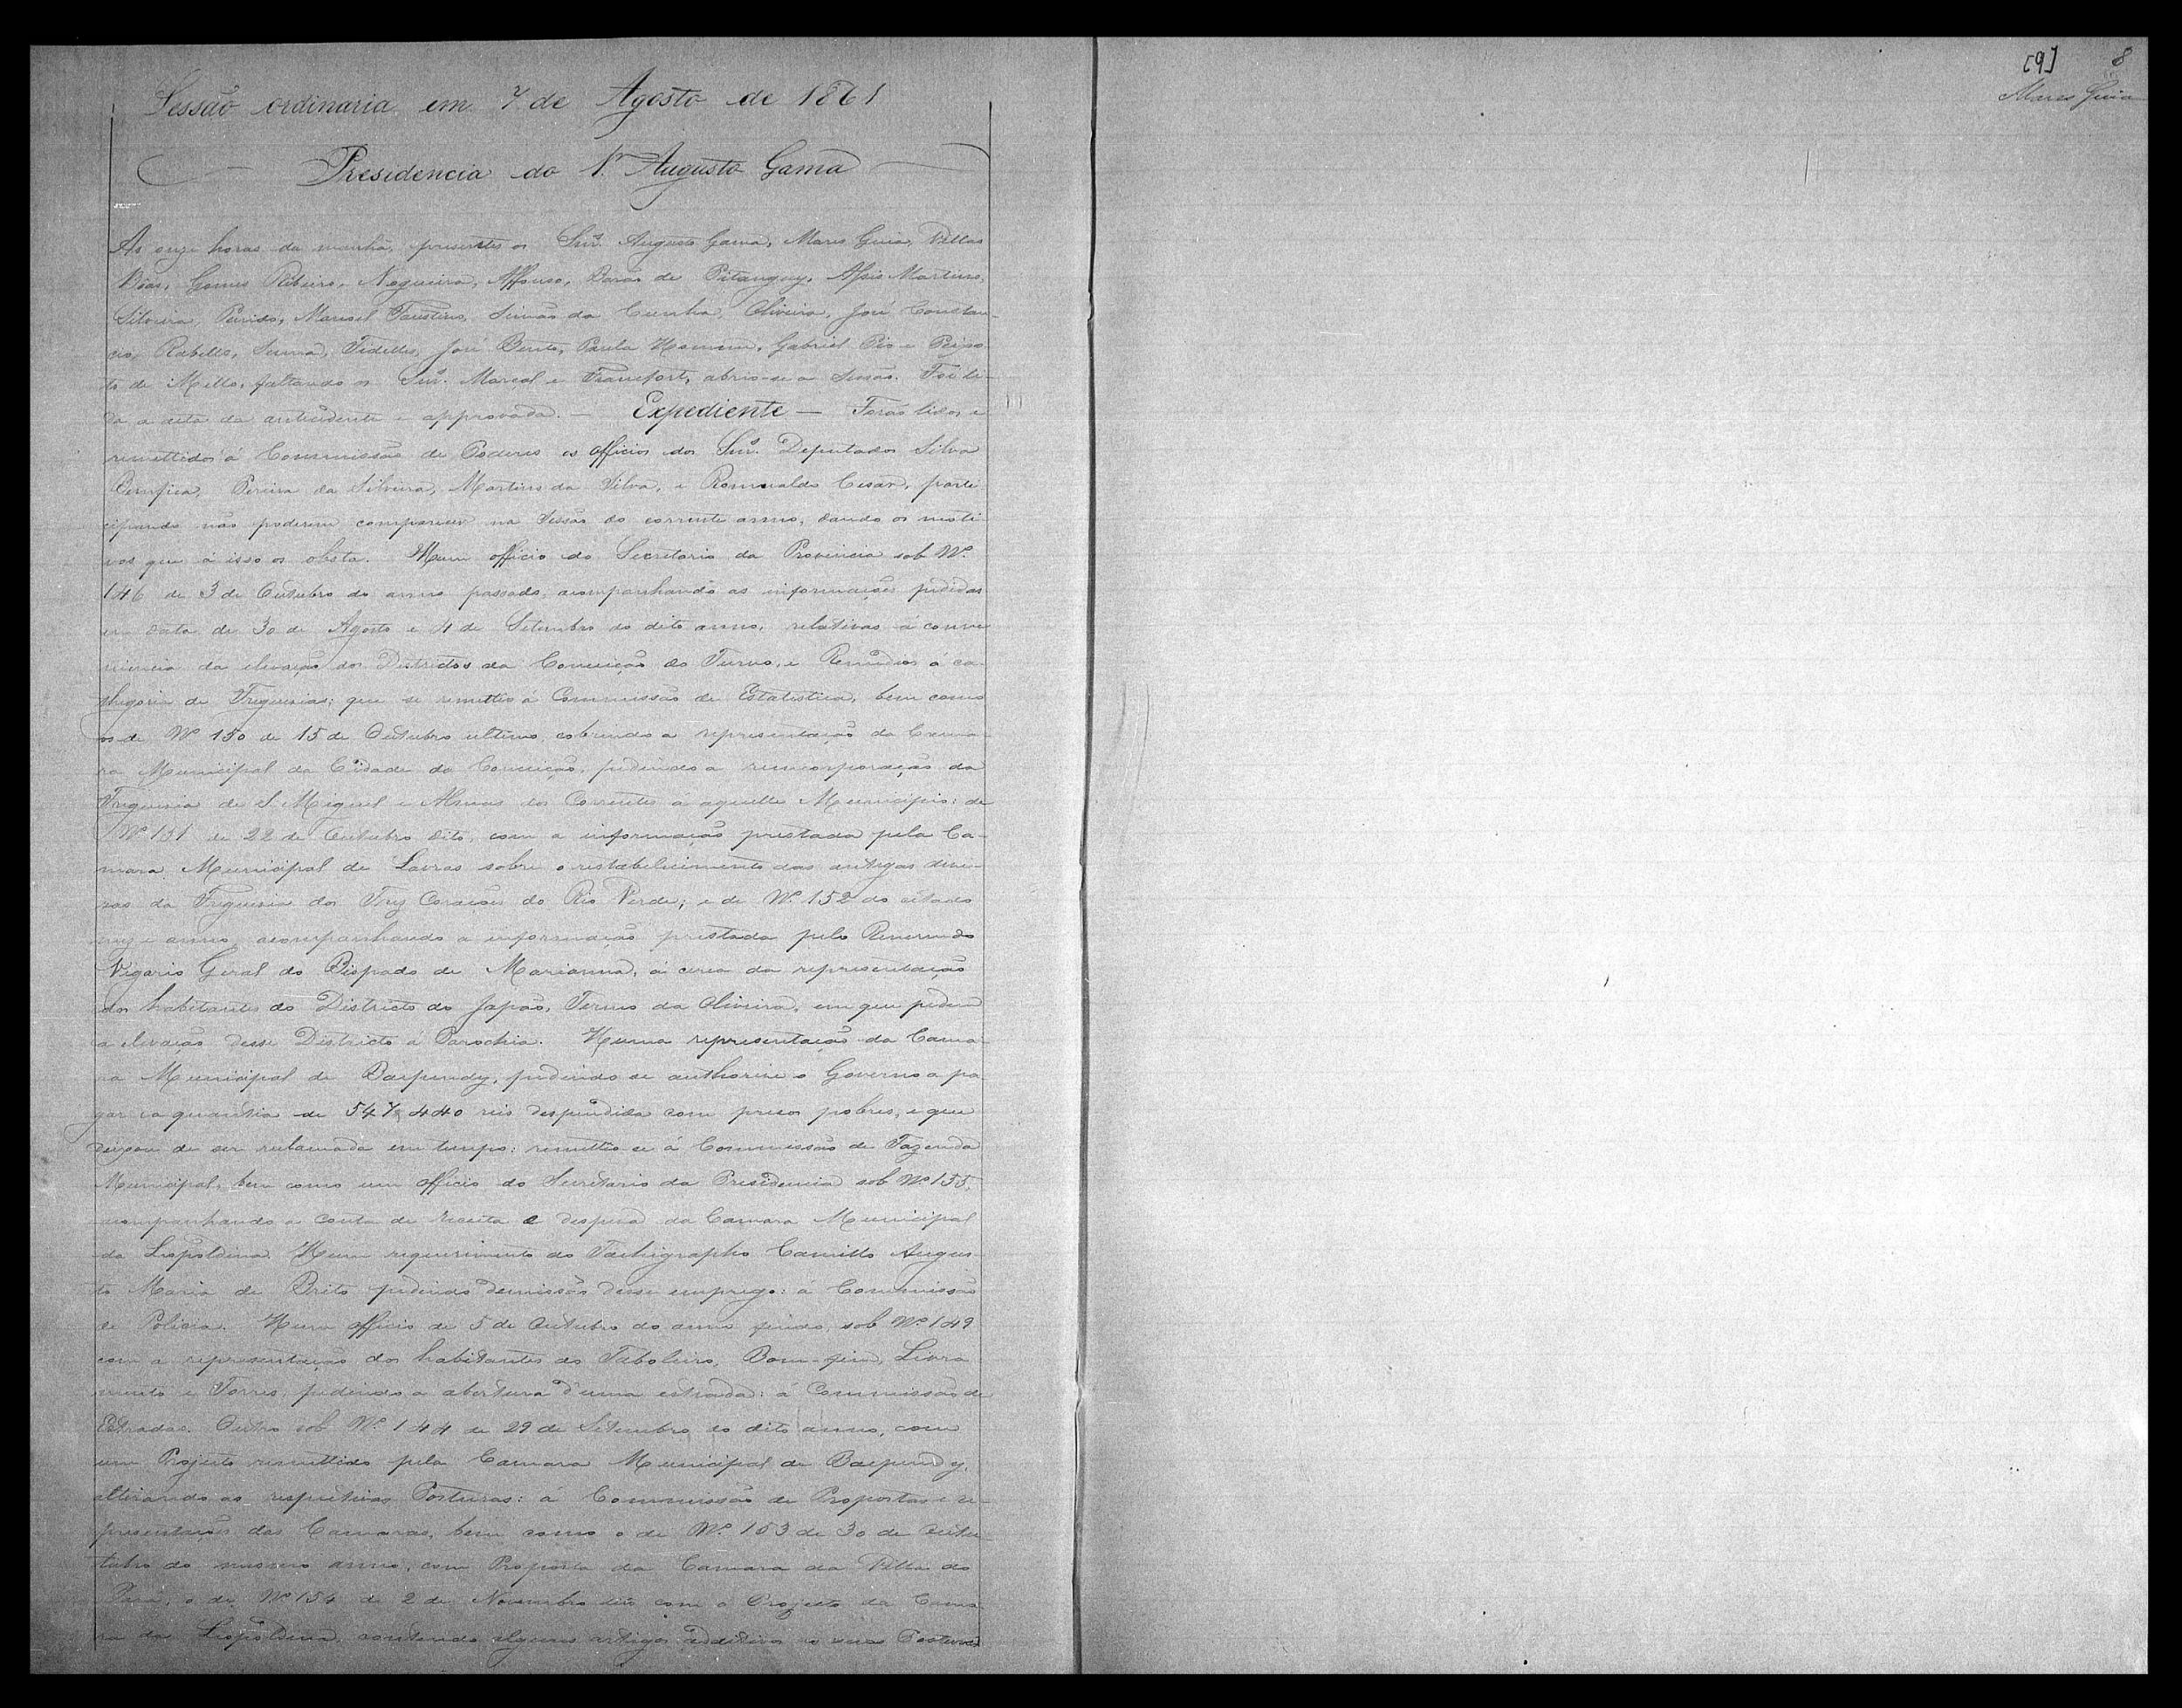 Sessão ordinaria em 7 de Agosto de 1861
Presidencia do Sr. Augusto Gama
As onze horas da manhã, presentes os Snrs. Augusto Gama, Mares Guia, Villas
Bôas, Gomes Ribeiro, Nogueira, Affonso, Barão de Pitanguy, Assis Martins,
Silveira, Manoel Faustino, Simão da Cunha, Oliveira, José Constan-
cio, Rabello, Fidelles, José Bento, Paula Gabriel Pio e Peixo-
to de Mello, faltando os Snrs. Marçal e abrio-se a Sessão. Foi li-
da a acta da antecedente e approvada. — Expediente — Forão lidos e
remettidos á Commissão de Poderes os officios dos Snrs. Deputados Silva
Pereira da Silveira, Martins da Silva, e Romualdo Cesar, parti
cipando não poderem comparecer na Sessão do corrente anno, dando os moti-
vos que á isso os obsta. Hum officio do Secretario da Provincia sob Nº
146 de 3 de Outubro do anno passado, acompanhando as informações pedidas
em data de 30 de Agosto e 4 de Setembro do dito anno, relativas á conve
niencia da elevação dos Districtos da Conceição do Turvo, e Remedios á ca-
thegoria de Freguesias; que se remetteo á Commissão de Estatistica, bem como
os de Nº 150 de 15 de Outubro ultimo, cobrindo a representação da Cama-
ra Municipal da Cidade da Conceição, pedindo a reincorporação da
Freguesia de S. Miguel e Almas dos Correntes á aquelle Municipio: de
Nº 151 de 22 de Outubro dito, com a informação prestada pela Ca-
mara Municipal de Lavras sobre o restabelecimento das antigas devi-
sas da Freguesia dos Trez Corações do Rio Verde; e de Nº 152 do citado
mez e anno, acompanhando a informação prestada pelo Reverendo
Vigario Geral do Bispado de Marianna, á cerca da representação
dos habitantes do Districto do Japão, Termo da Oliveira, em que pedem
a elevação desse Districto á Parochia. Huma representação da Cama-
ra Municipal de Baependy, pedindo se authorise o Governo a pa-
gar a quantia de 547$440 reis despendida com presos pobres, e que
deixou de ser reclamada em tempo: remetteo-se á Commissão de Fazenda
Municipal, bem como um officio do Secretario da Presidencia sob Nº 155,
acompanhando a conta de receita e despesa da Camara Municipal
da Leopoldina. Hum requerimento do Tachigrapho Camillo Augus-
to Maria de Brito pedindo demissão desse emprego: á Commissão
de Policia. Hum officio de 5 de Outubro do anno findo, sob Nº 149
com a representação dos habitantes do Taboleiro, Bom-fim, Livra
mento e Torres, pedindo a abertura d'uma estrada: á Commissão de
Estradas. Outro sob Nº 144 de 29 de Setembro do dito anno, com
um Projecto remettido pela Camara Municipal de Baependy,
alterando as respectivas Posturas: á Commissão de Propostas e re-
presentações das Camaras, bem como o de Nº 153 de 30 de Outu-
tubro do mesmo anno, com Proposta da Camara da Villa do
o de Nº 154 de 2 de Novembro dito com o Projecto da Cama-
ra da Leopoldina, contendo alguns artigos additivos á suas Posturas
[9] 8
Mares Guia